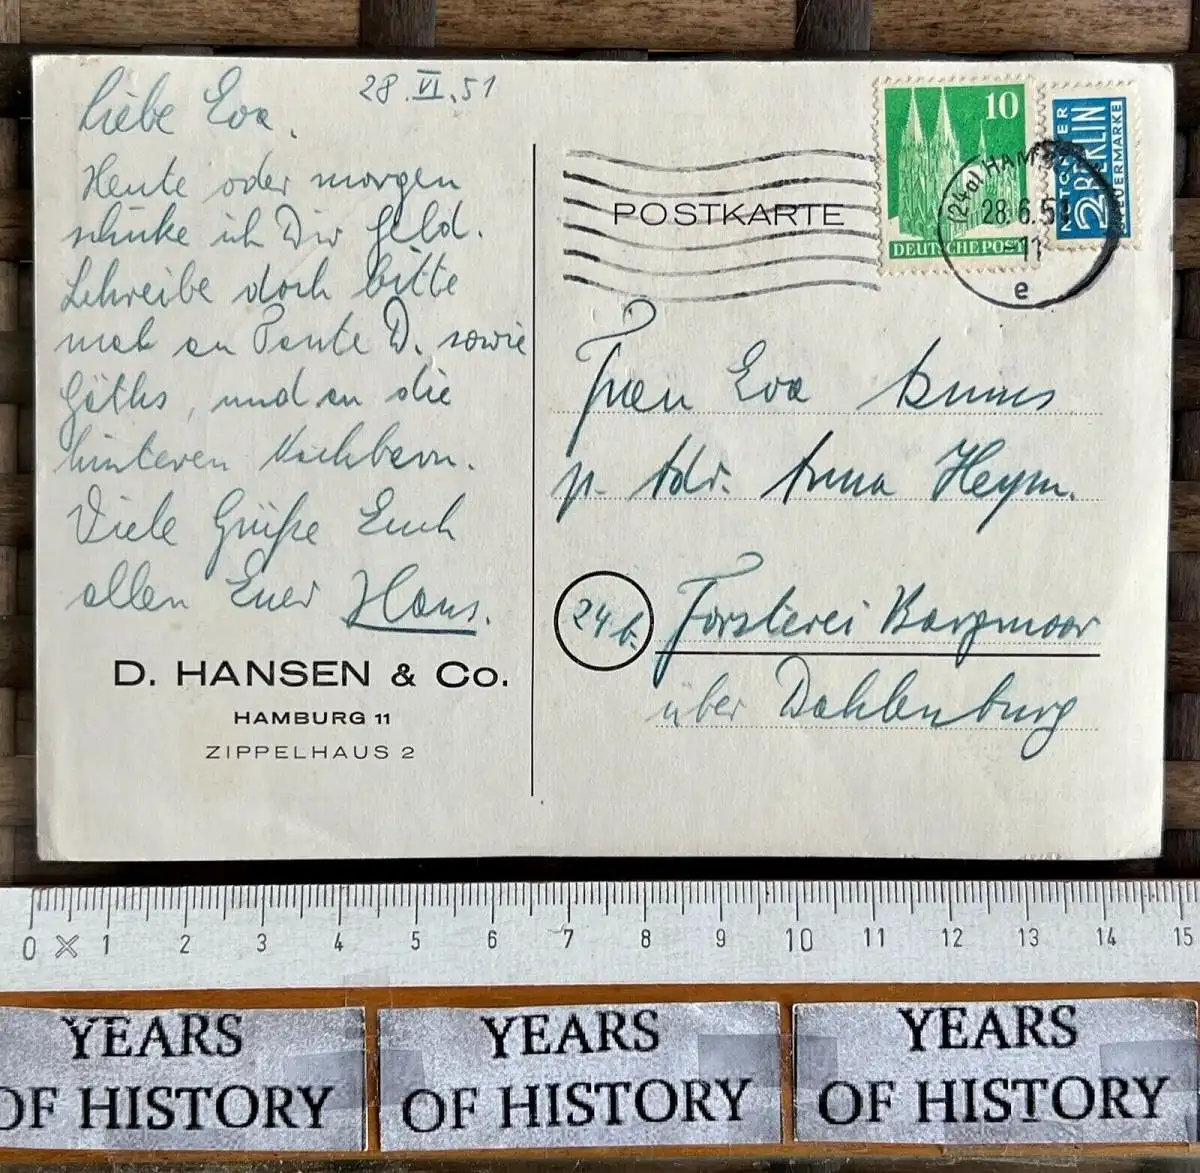 28.VI.51
Liebe Eva.
Heute oder morgen
schicke ich Dir Geld.
Schreibe doch bitte
mal an Tante D. sowie
Göths, und an die
hinteren Nachbarn.
Viele Grüße Euch
allen Euer Hans.
D. HANSEN & Co.
HAMBURG 11
ZIPPELHAUS 2
POSTKARTE
10
DEUTSCHE POST
NOTOPFER
2 BERLIN
STEUERMARKE
(24a) HAMBURG
28.6.51
-11
e
Frau Eva
p. Adr. Anna Heym.
24 b.
Försterei Bargmoor
über Dahlenburg
0 1 2 3 4 5 6 7 8 9 10 11 12 13 14 15
YEARS
OF HISTORY
YEARS
OF HISTORY
YEARS
OF HISTORY